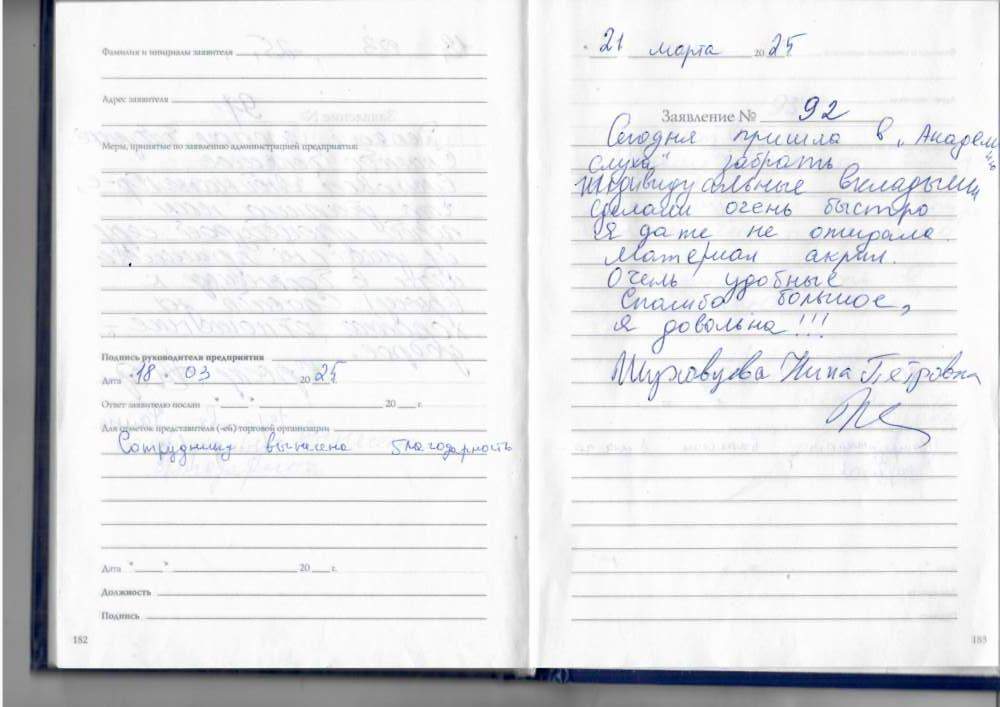 Фамилия и инициалы заявителя
Адрес заявителя
Меры, принятые по заявлению администрацией предприятия:
Подпись руководителя предприятия
Дата "18" 03 2025 г.
Ответ заявителю послан " " 20 г.
Для отметок представителя (-ей) торговой организации
Сотруднику вынесена благодарность
Дата " " 20 г.
Должность
Подпись
182
"21 марта 2025
Заявление № 92
Сегодня пришла в „Академию
слуха" забрать
Индивидуальные вкладыши
сделали очень быстро
Я даже не ожидала.
Материал акрил.
Очень удобные
Спасибо большое,
я довольна!!!
Нина Петровна
183